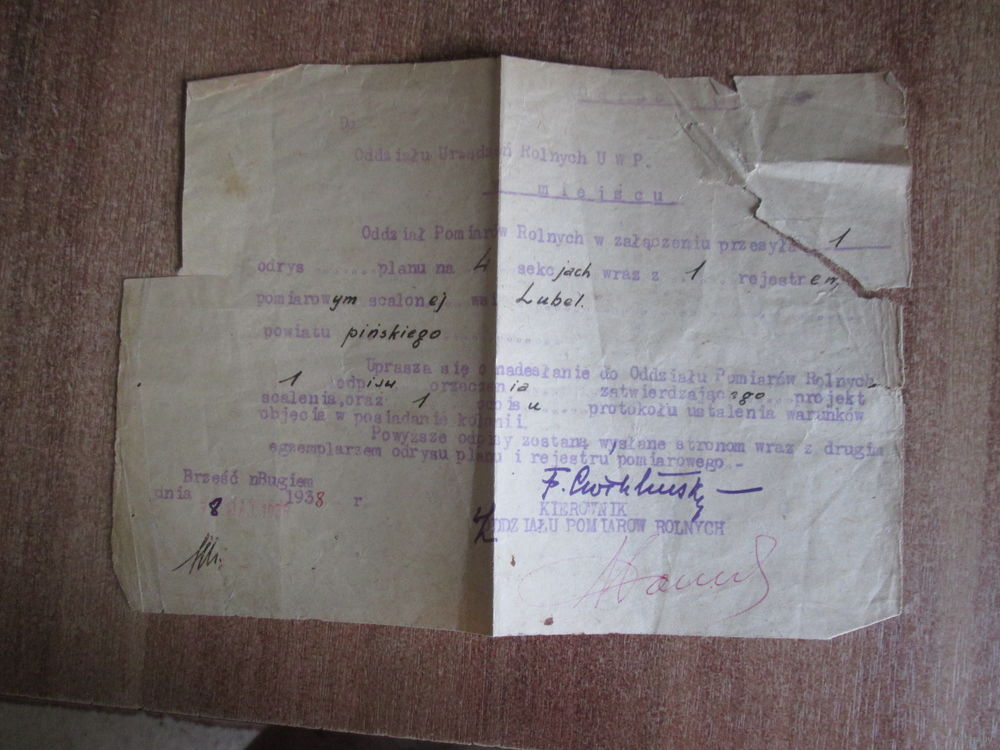 Do
Oddziału Urządzeń Rolnych U w P.
miejscu
Oddział Pomiarów Rolnych w załączeniu przesyła 1
odrys ....... planu na 4 sekcjach wraz z 1 ..... rejestrem
pomiarowym scalonej wsi Lubel.
powiatu pińskiego
Uprasza się o nadesłanie do Oddziału Pomiarów Rolnych
1 odpisu orzeczenia zatwierdzającego projekt
scalenia, oraz 1 odpisu protokołu ustalenia warunków
objęcia w posiadanie kolonii.
Powyższe odpisy zostaną wysłane stronom wraz z drugim
egzemplarzem odrysu planu i rejestru pomiarowego.-
Brześć nBugiem
dnia 8 1938 r.
F.
KIEROWNIK
ODDZIAŁU POMIARÓW ROLNYCH